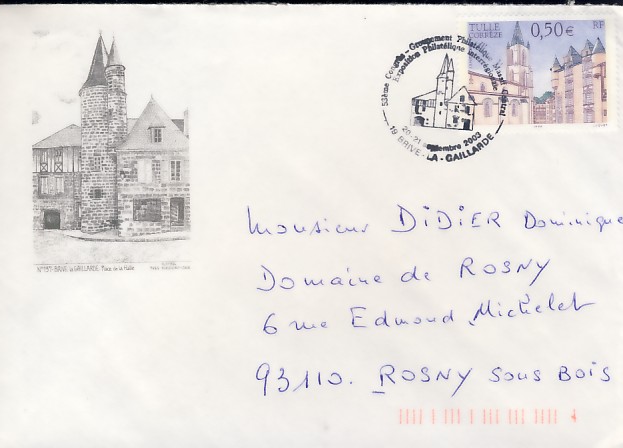 TULLE
CORRÈZE
0,50€
RF
53ème Congrès - Groupement Philatélique
Exposition Philatélique Interrégionale
20-21 septembre 2003
19 BRIVE-LA-GAILLARDE
N°1937-BRIVE la GAILLARDE Place de la Halle
Monsieur DiDiER Dominique
Domaine de ROSNY
6 rue Edmond Michelet
93110. ROSNY SOUS BOIS